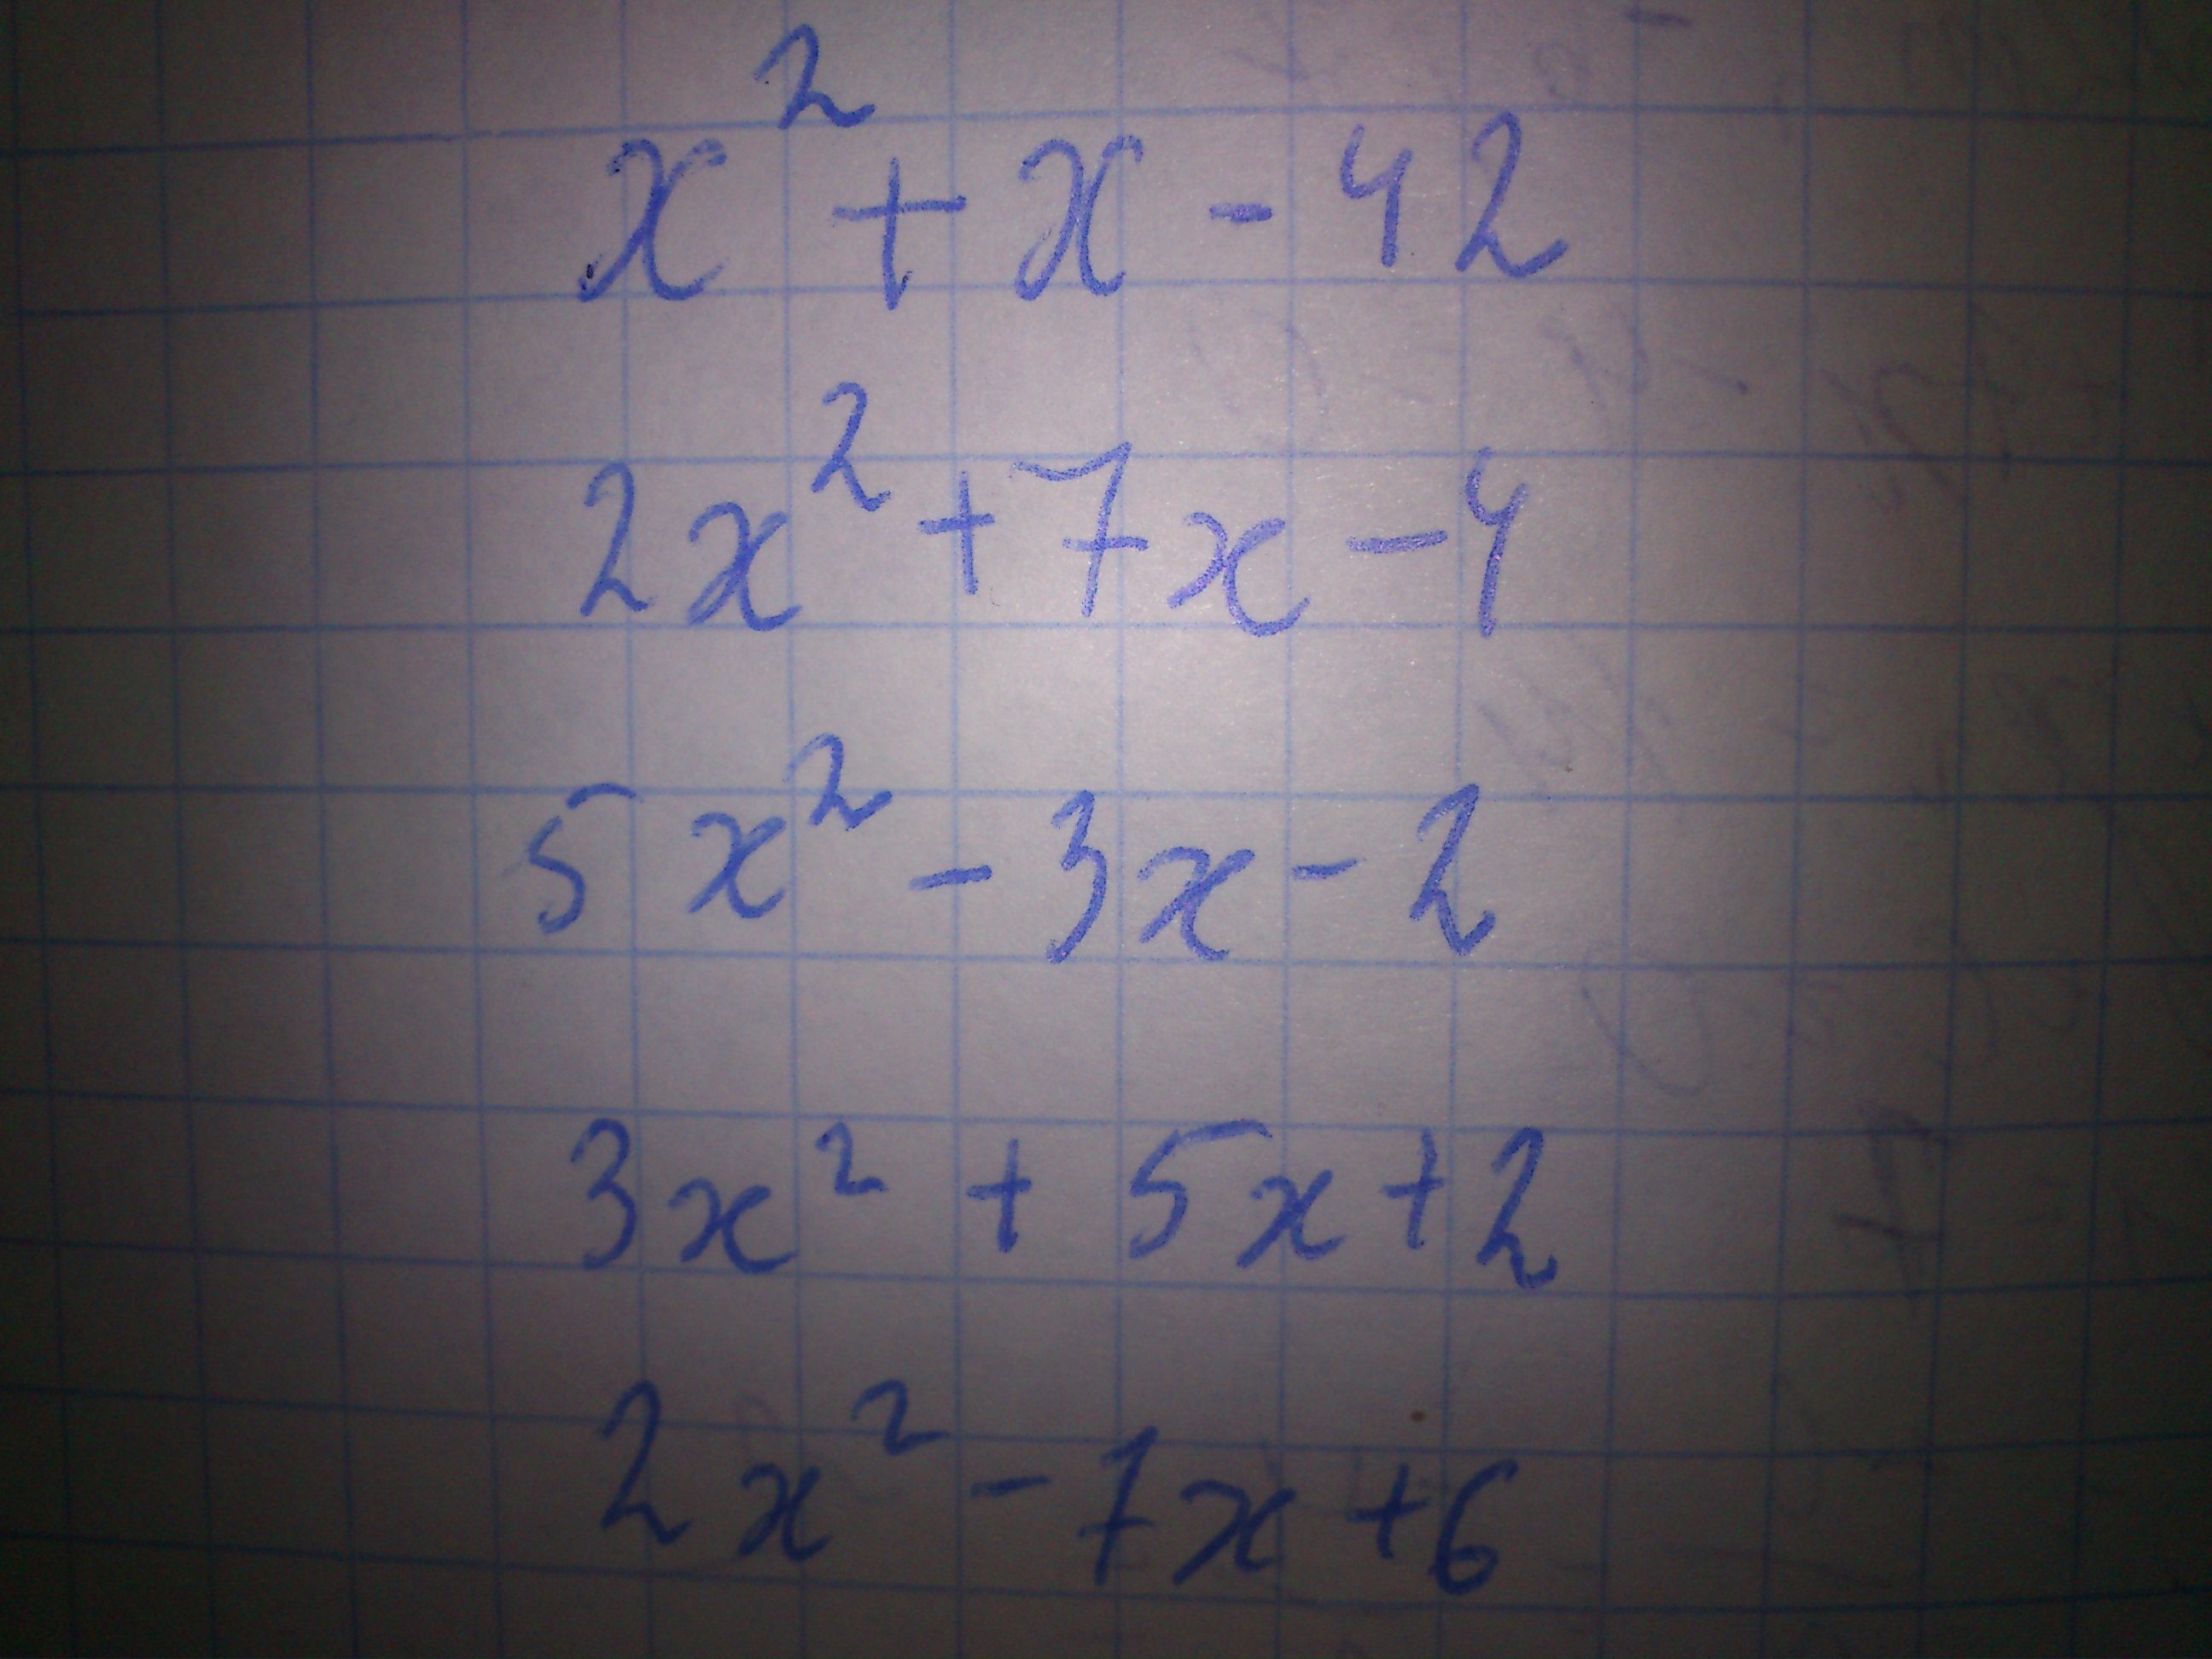 x² + x - 42
2x² + 7x - 4
5x² - 3x - 2
3x² + 5x + 2
2x² - 7x + 6